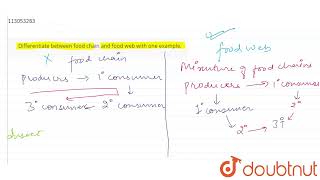 113053263
Differentiate between food chain and food web with one example.
x food chain
producers → 1° consumer
3° consumer 2° consumer
food web
Mixture of food chains
producers → 1° consumer
1° consumer 2°
2° → 3°
doubtnut